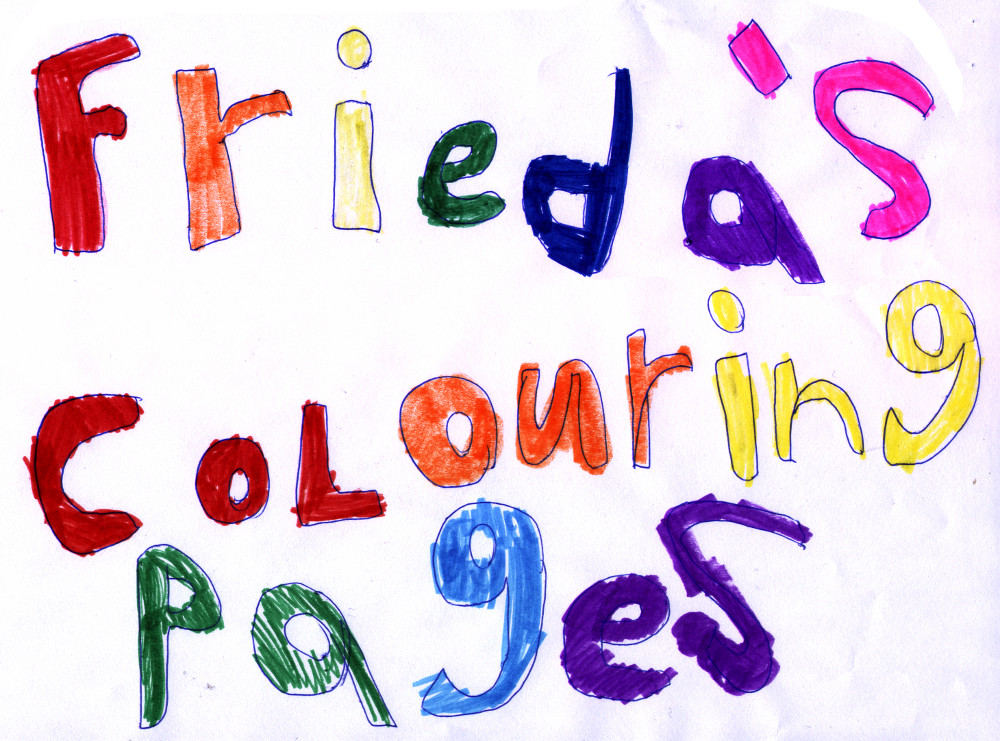 Frieda's
Colouring
Pages